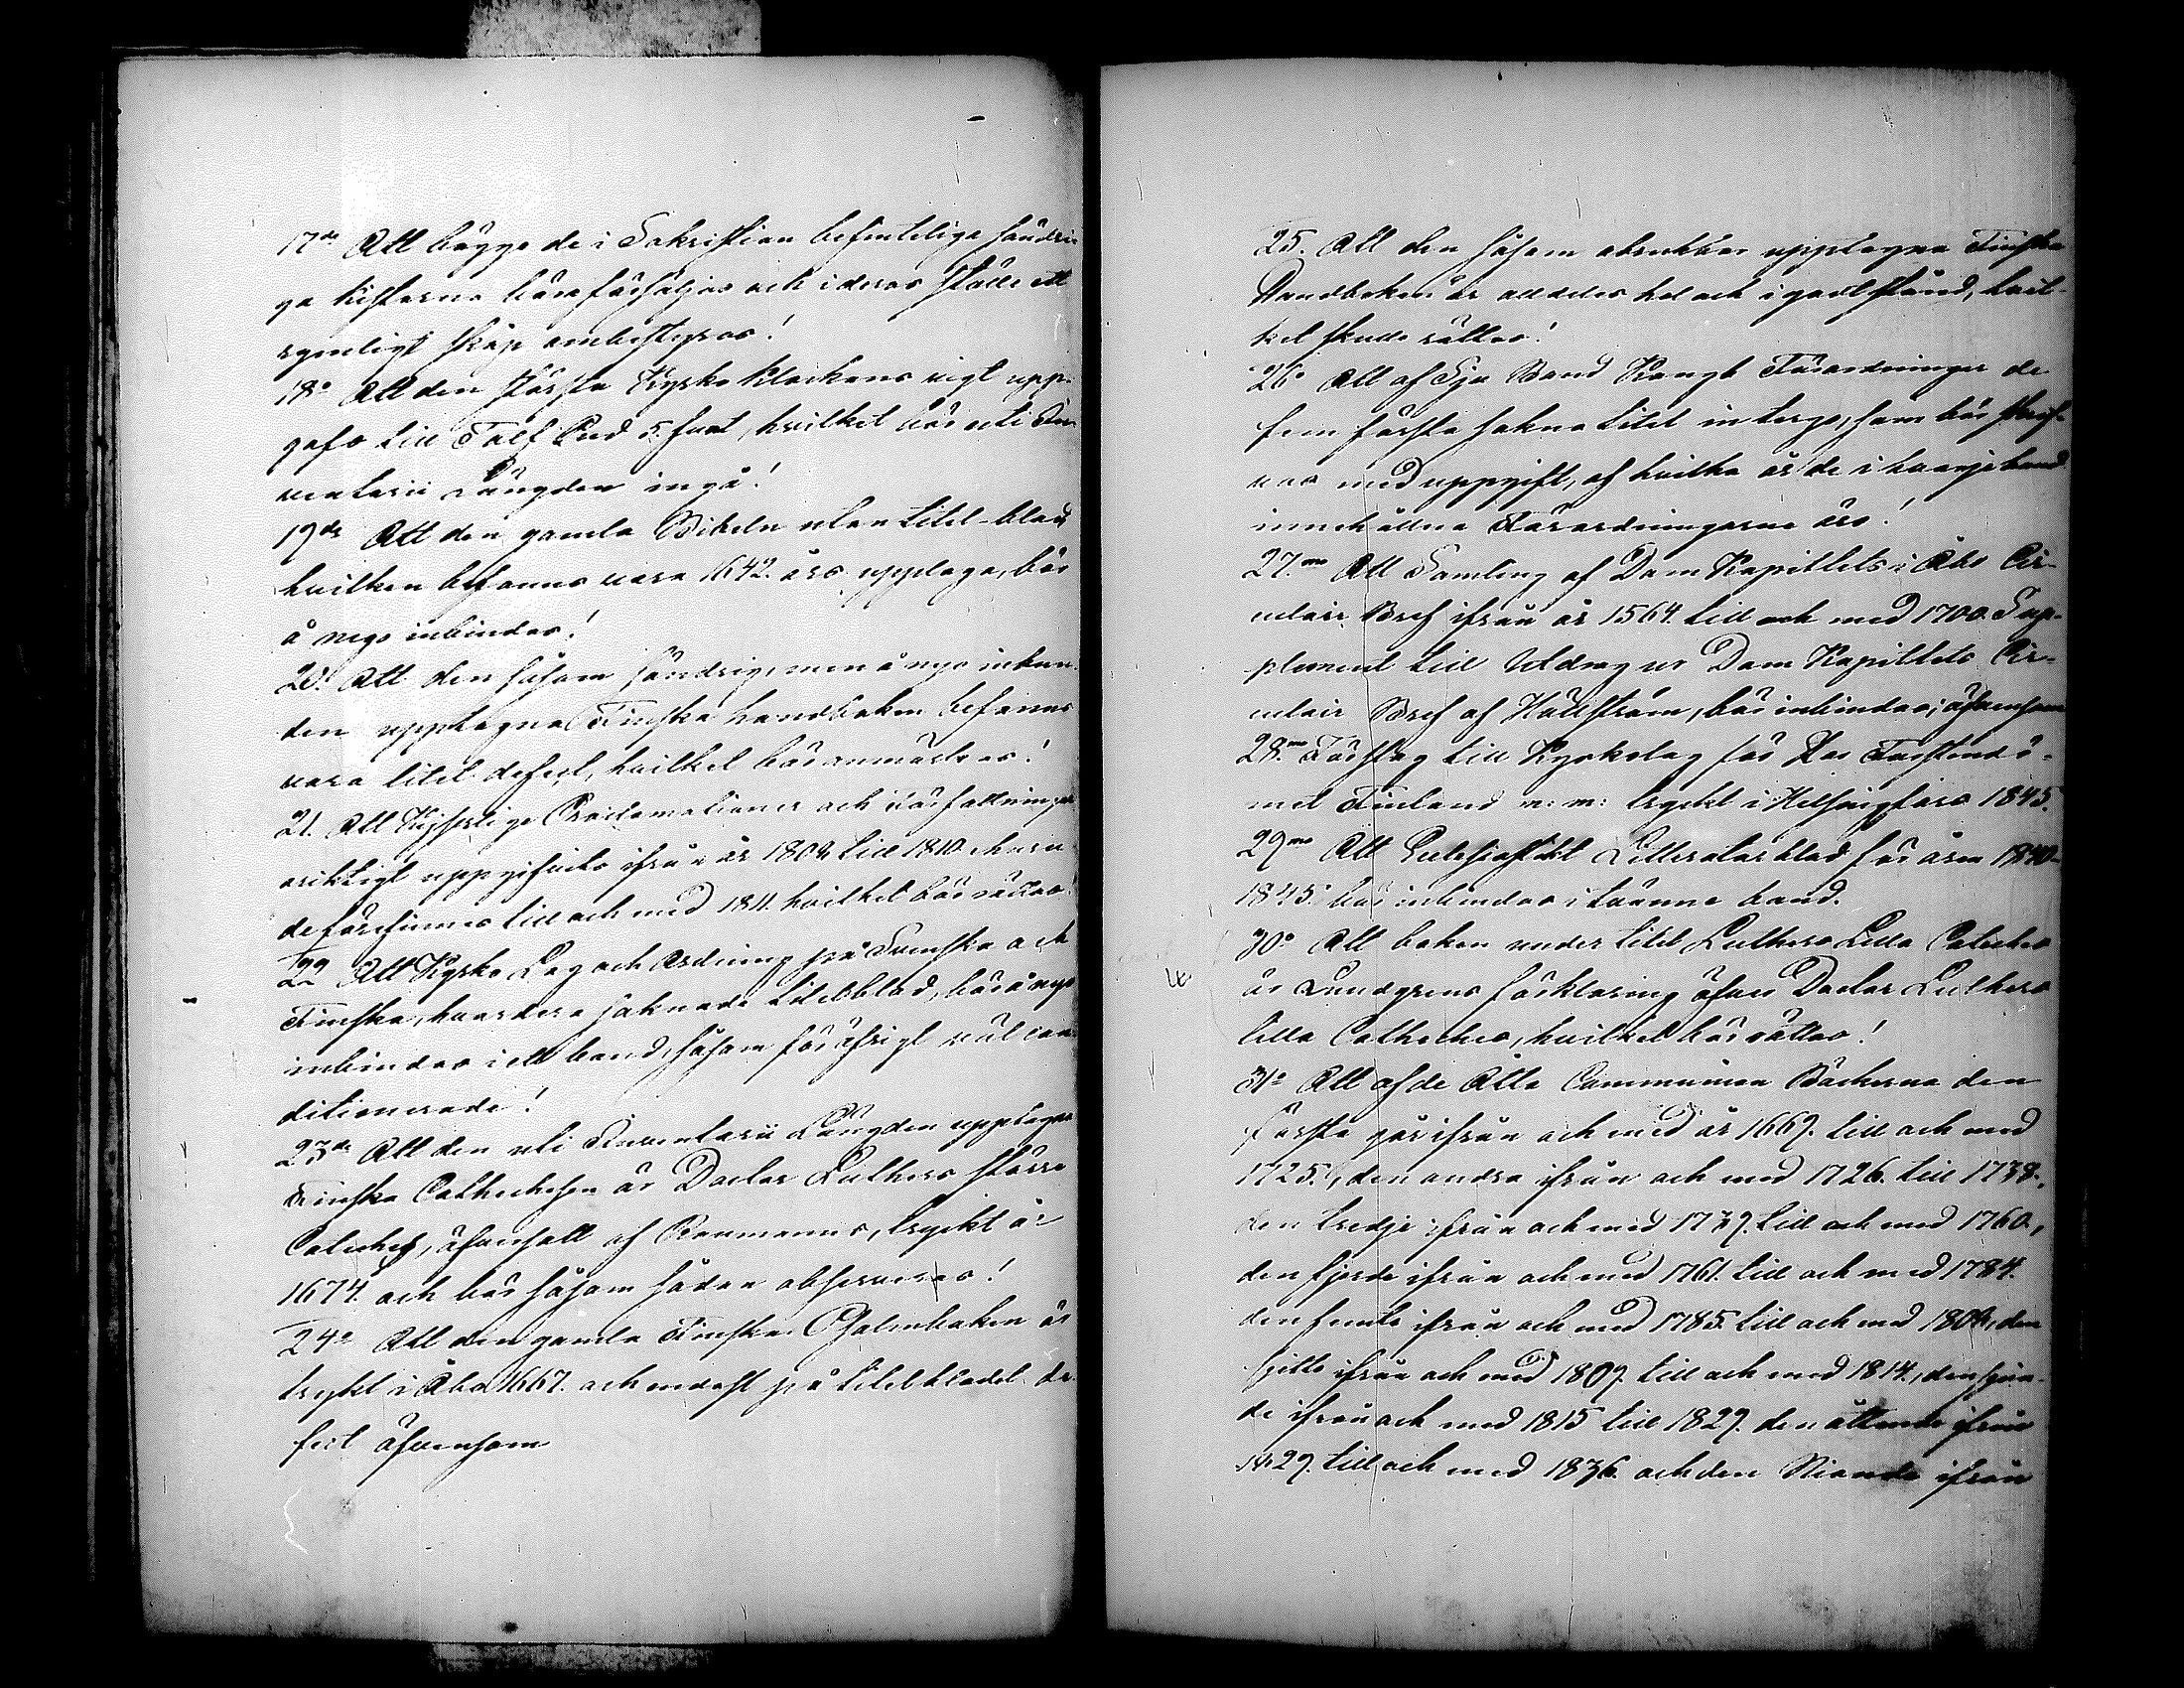 17de Att bägge de i Sakristian befinteliga söndri-
ga kistorna böra försäljas och i deras ställe ett
rymligt skåp ombestyras!
18o Att den största Kyrko klockans vigt upp-
gafs till Tolf Pud 5. funt, hvilket bör uti In-
ventarii Längden ingå!
19de Att den gamla Bibeln utan titel-blad
hvilken befanns vara 1642. års upplaga, bör
å nyo inbindas!
20o Att den såsom söndrig, men å nyo inbun-
den upptagna Finska handboken befanns
vara titel defect, hvilket bör anmärkas!
21. Att Kejserliga Proclamationer och Författningar
oriktigt uppgifvits ifrån år 1808 till 1810. ehuru
de förefinnes till och med 1811. hvilket bör rättas!
22 Att Kyrko Lag och Ordning på Svenska och
Finska, hvardera saknade titelblad, bör å nyo
inbindas i ett band, såsom för öfrigt väl con-
ditionerade!
23de Att den uti Inventarii Längden upptagna
Finska Cathechesen är Doctor Luthers större
Cateches, öfversatt af Raumannus, tryckt år
1674. och bör såsom sådan observeras!
24o Att den gamla Finska Psalmboken är
tryckt i Åbo 1667. och endast på titelbladet de-
fect äfvensom
25. Att den såsom obrukbar upptagna Finska
Handboken är alldeles hel och i godt stånd, hvil-
ket skude rättas!
26o Att af Sju Band Kongl Förordningar de
fem första sakna titel in tergo, som bör skrif-
vas med uppgift, af hvilka år de i hvarje band
innehållna Förordningarne äro!
27.mo Att Samling af Dom Kapitlets i Åbo Cir-
culair Bref ifrån år 1564. till och med 1700. Sup-
plement till Utdrag ur Dom Kapitlets Cir-
culair Bref af Hällström, bör inbindas; äfvensom
28.mo Förslag till Kyrkolag för Stor Furstendö-
met Finland m: m: tryckt i Helsingfors 1845.
29mo Att Ecclesiastikt Litteraturblad för åren 1840-
1845. bör inbindas i tvänne band.
30o Att boken under titel Luthers Lilla Cateches
är Lundgrens förklaring öfver Doctor Luthers
lilla Catheches, hvilket bör rättas!
31o Att af de Åtta Communion Böckerna den
första går ifrån och med år 1669. till och med
1725., den andra ifrån och med 1726. till 1738.,
den tredje ifrån och med 1739. till och med 1760.,
den fjerde ifrån och med 1761. till och med 1784.
den femte ifrån och med 1785. till och med 1808, den
sjette ifrån och med 1809. till och med 1814., den sjun-
de ifrån och med 1815 till 1829. den åttonde ifrån
1829. till och med 1836. och den Nionde ifrån